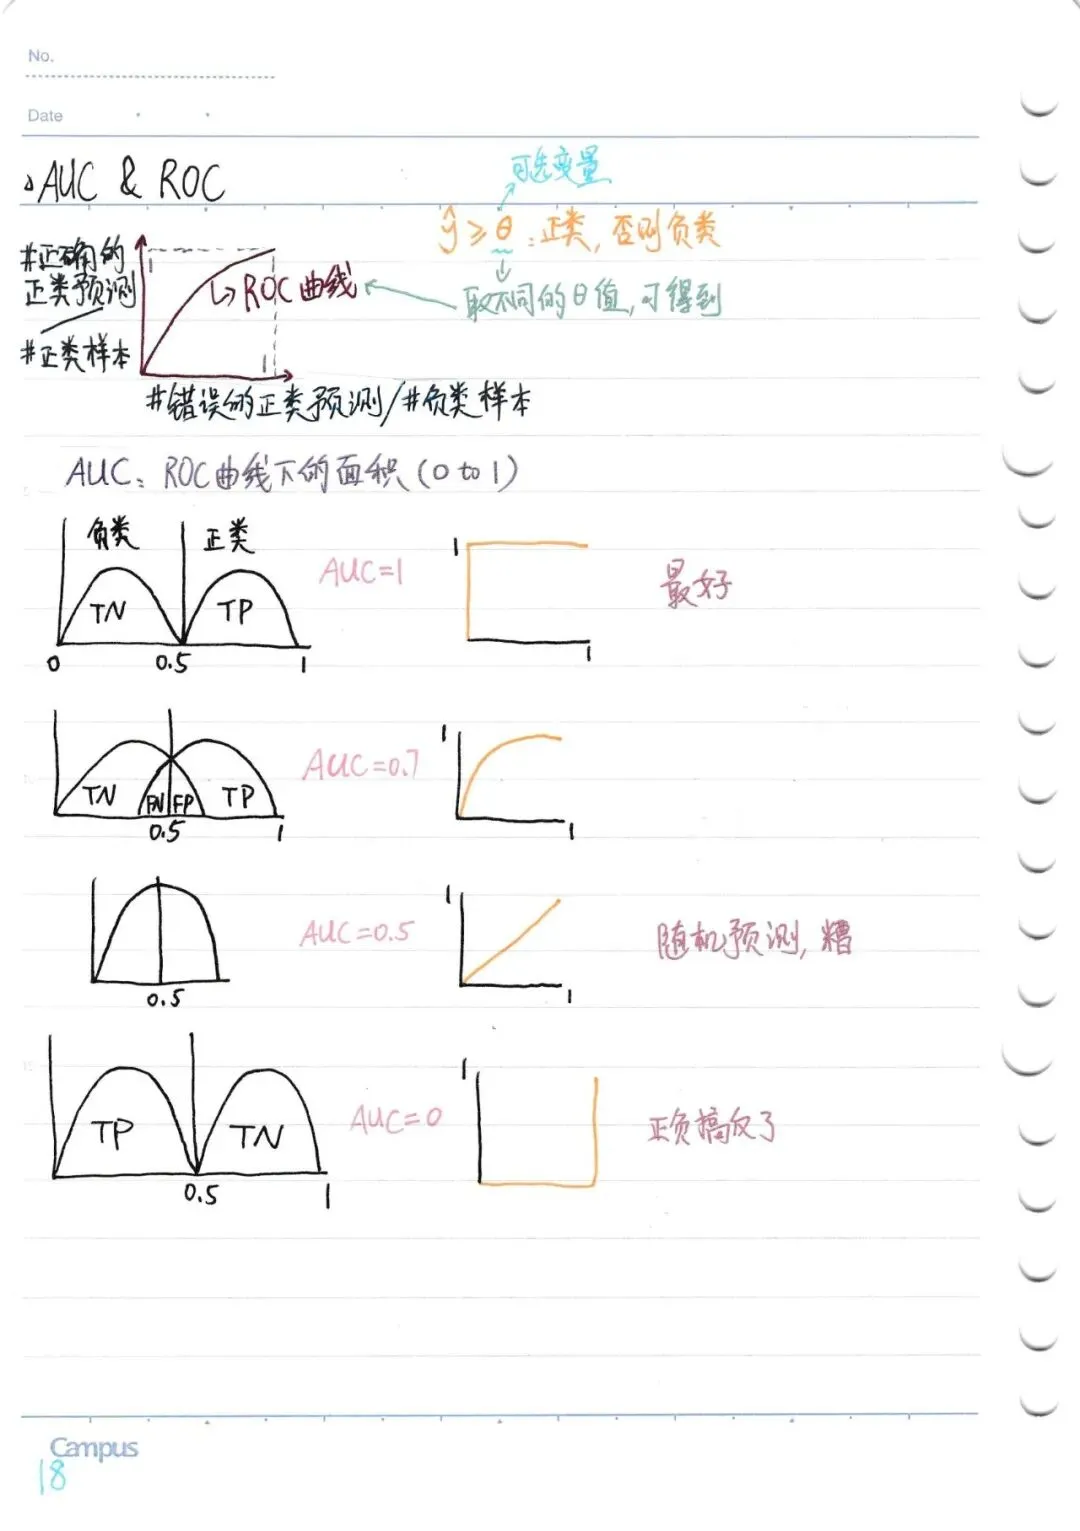 No.
Date
AUC & ROC
可选变量
ŷ ≥ θ :正类, 否则负类
取不同的θ值,可得到
#正确的
正类预测
#正类样本
1
ROC曲线
1
#错误的正类预测/#负类样本
AUC: ROC曲线下的面积 (0 to 1)
负类 正类
TN TP
0 0.5 1
AUC=1
1
1
最好
TN FN FP TP
0.5 1
AUC=0.7
1
1
0.5
AUC=0.5
1
1
随机预测, 糟
TP TN
0.5 1
AUC=0
1
正负搞反了
Campus
18